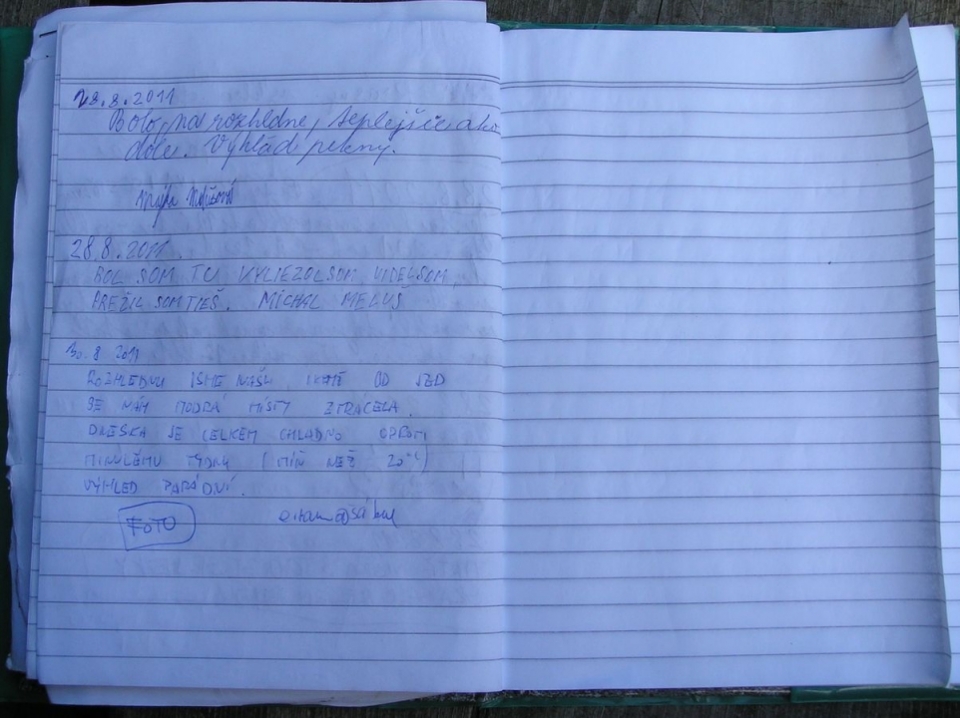 28.8.2011
Bolo, na rozhledne, teplejšie ako
dole. Výhlad pekný.
28.8.2011.
BOL SOM TU VYLIEZOL SOM VIDEL SOM,
PREŽIL SOM TIEŠ. MICHAL MELUŠ
30.8 2011
ROZHLEDNU JSME NAŠLI, OD
SE NÁM MODRÁ MÍSTY ZTRÁCELA.
DNESKA JE CELKEM CHLADNO OPROTI
MINULÉMU TÝDNU (MÍŇ NEŽ 20°C)
VÝHLED PARÁDNÍ.
FOTO